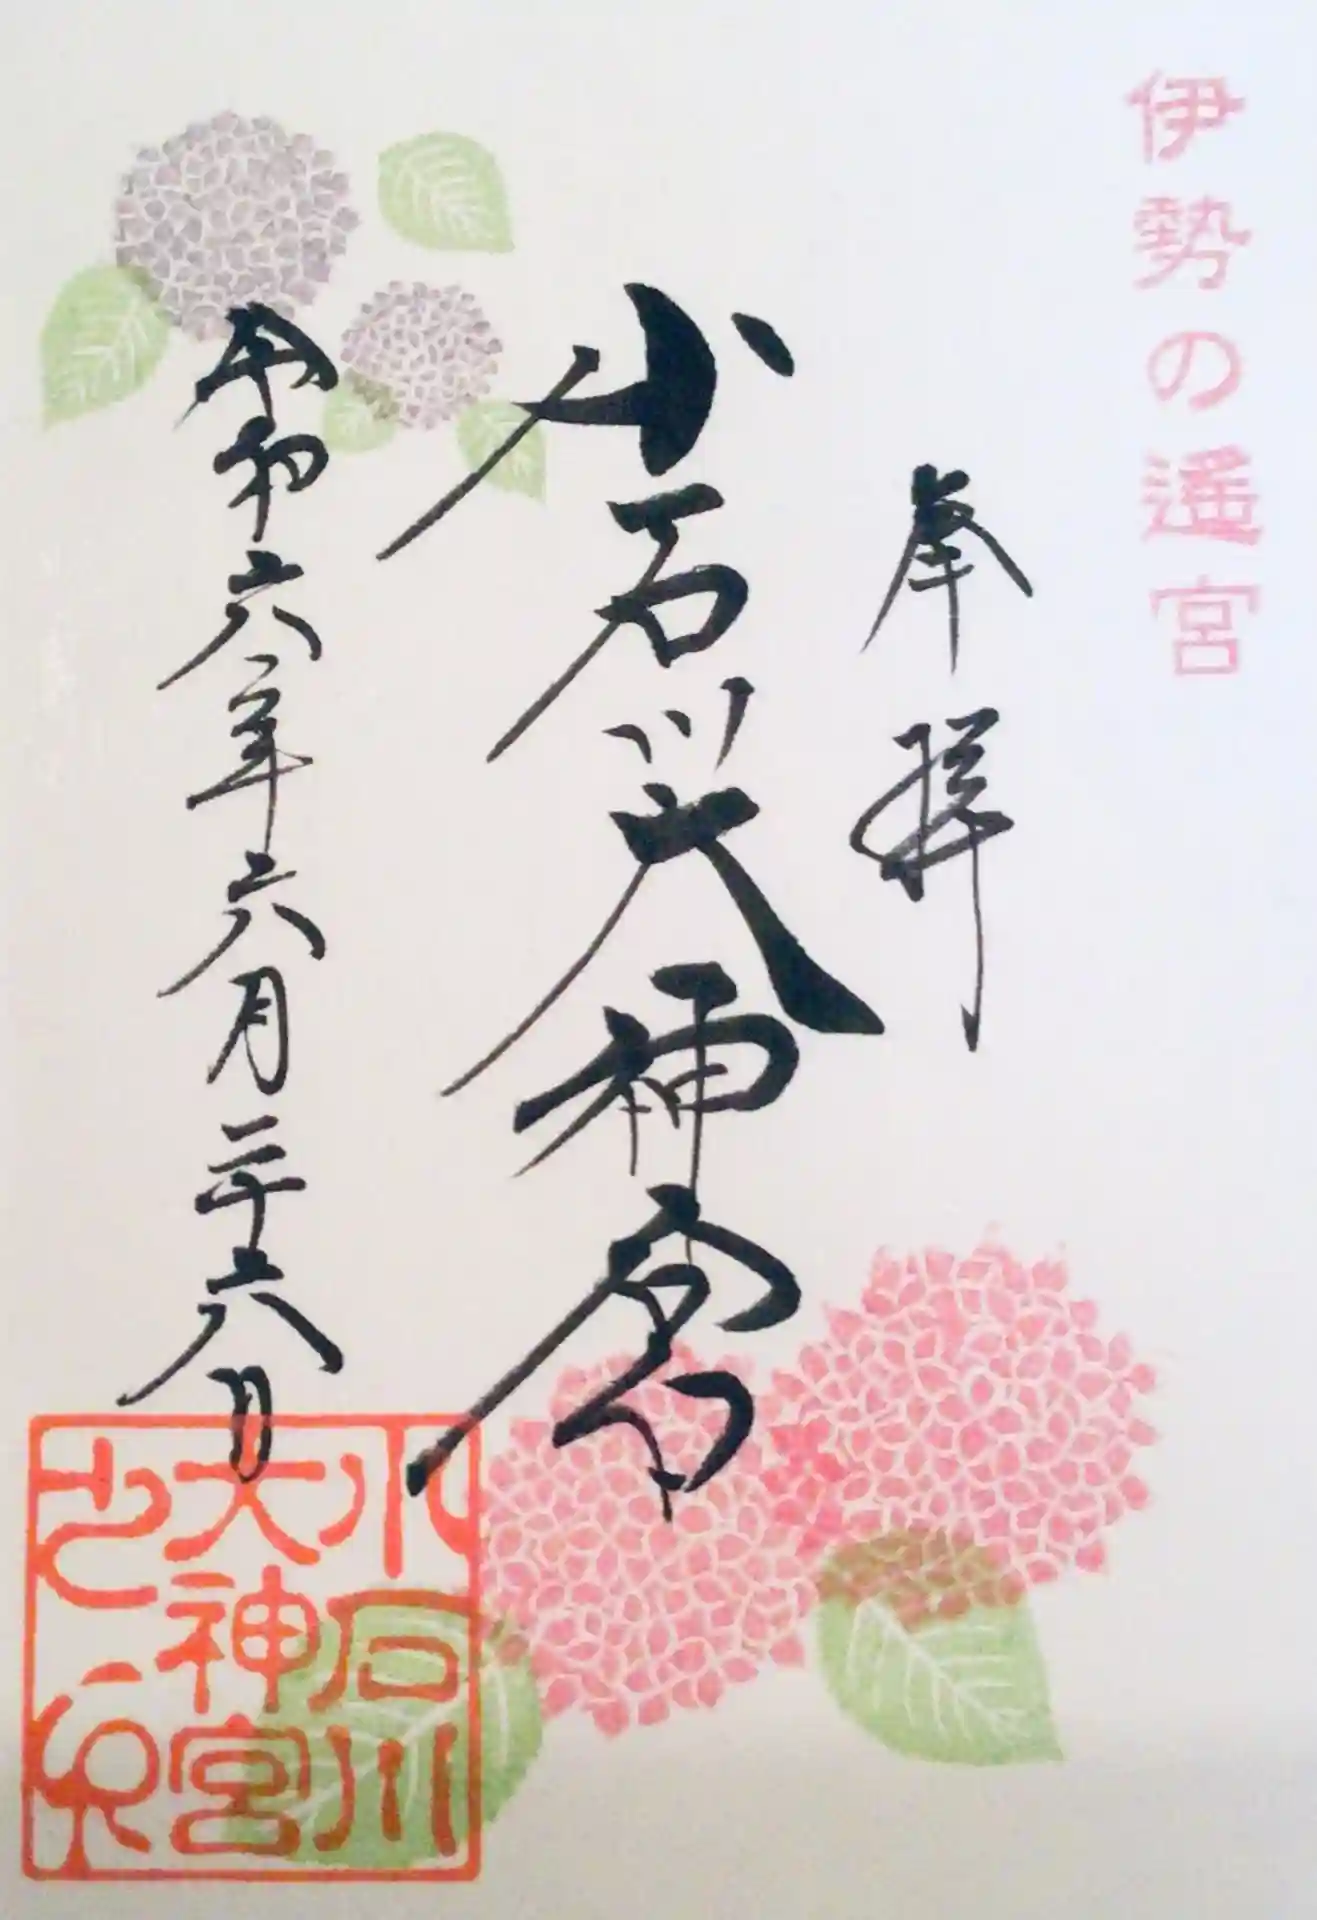 伊勢の遥宮
奉拝
小石川大神宮
令和六年六月二十六日
小石川
大神宮
之印